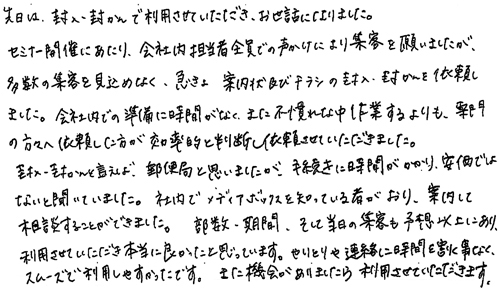 先日は、封入・封かんで利用させていただき、お世話になりました。
セミナー開催にあたり、会社内担当者全員での声かけにより集客を願いましたが、
多数の集客を見込めなく、急きょ 案内状及びチラシの封入・封かんを依頼し
ました。会社内での準備に時間がなく、また不慣れな中作業するよりも、専門
の方々へ依頼した方が効率的と判断し依頼させていただきました。
封入・封かんと言えば、郵便局と思いましたが、手続きに時間がかかり、安価では
ないと聞いていました。社内でメディアボックスを知っている者がおり、案内して
相談することができました。 部数・期間、そして当日の集客も予想以上にあり、
利用させていただき本当に良かったと思っています。やりとりや連絡に時間を割く事なく、
スムーズで利用しやすかったです。また機会がありましたら利用させていただきます。